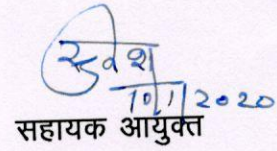 10/1/2020
सहायक आयुक्त